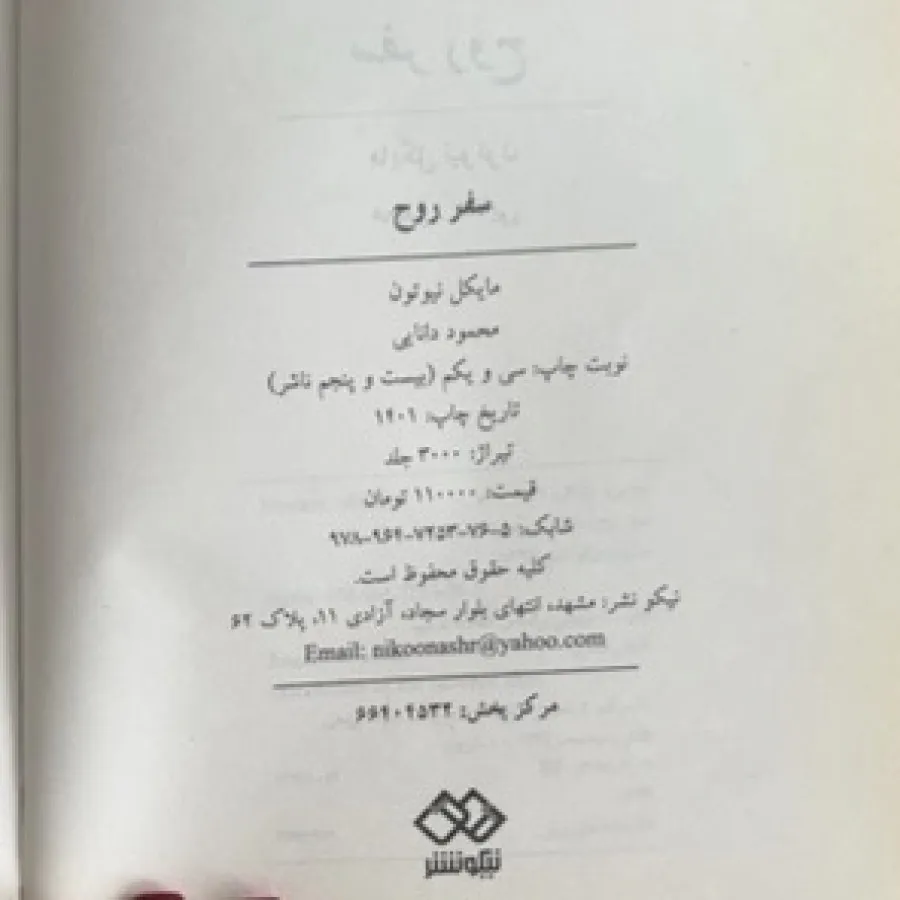 سفر روح
مایکل نیوتون
محمود دانایی
نوبت چاپ: سی و یکم (بیست و پنجم ناشر)
تاریخ چاپ: ۱۴۰۱
تیراژ: ۳۰۰۰ جلد
قیمت: ۱۱۰۰۰۰ تومان
شابک: ۵-۷۶-۷۲۵۳-۹۶۴-۹۷۸
کلیه حقوق محفوظ است.
نیکو نشر: مشهد، انتهای بلوار سجاد، آزادی ۱۱، پلاک ۶۲
Email: nikoonashr@yahoo.com
مرکز پخش:
نیکونشر